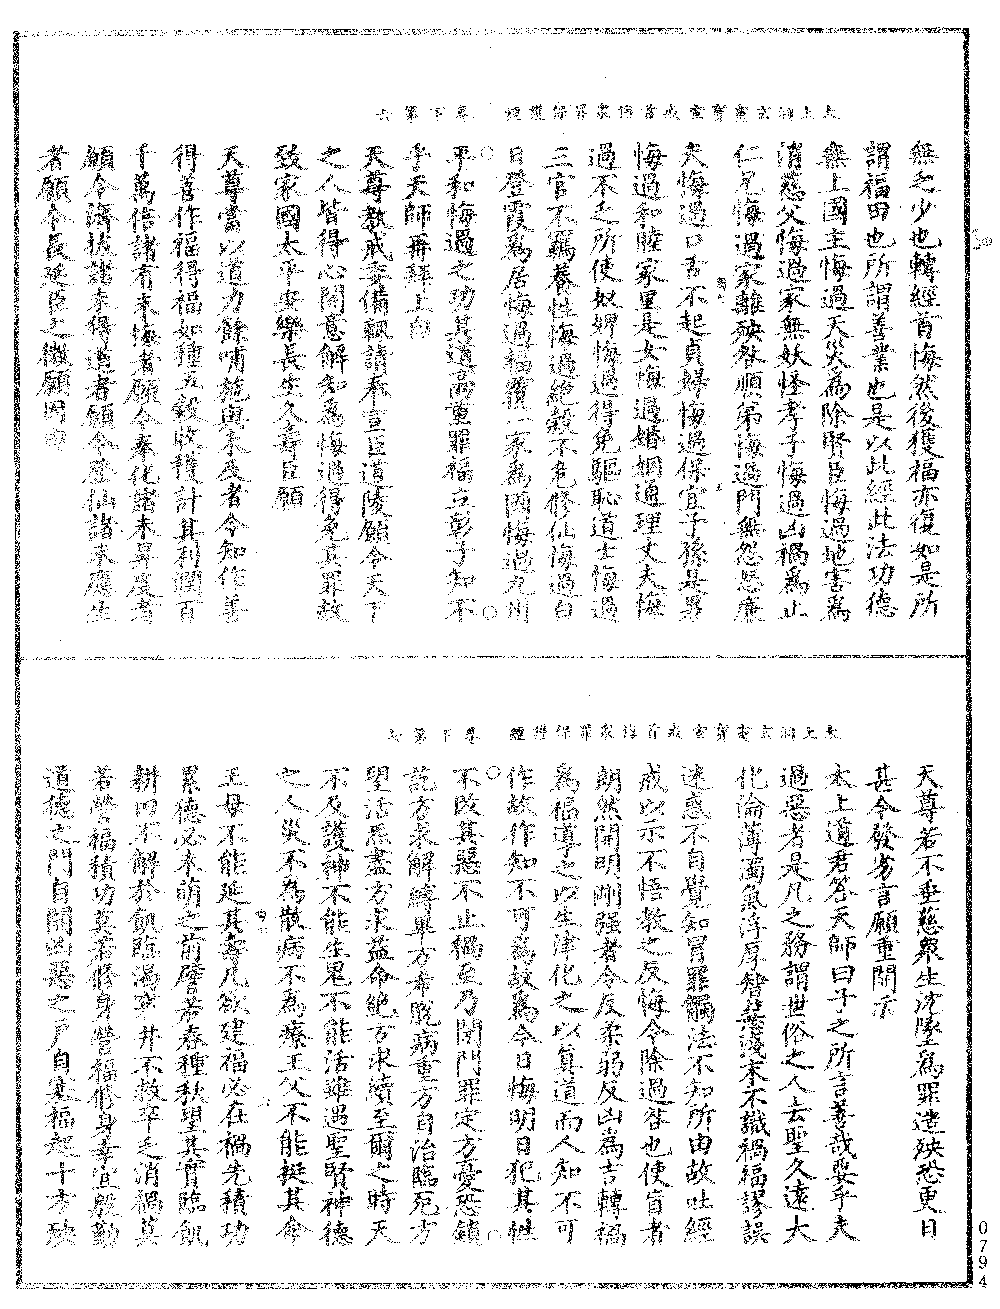 太上洞玄靈寶宣戒首悔衆罪保護經　卷下第六
無乏少也轉經首悔然後獲福亦復如是所
謂福田也所謂善業也是以此經此法功德
無上國主悔過天災為除賢臣悔過地害為
消慈父悔過家無妖怪孝子悔過凶禍為止
仁兄悔過家離殃咎順弟悔過門無怨惡
夫悔過口舌不起貞婦悔過保宜子孫是男
悔過和睦家里是女悔過婚姻通理丈夫悔
過不乏所使奴婢悔過得免驅恥道士悔過
三官不羈養性悔過絕穀不危修仙悔過白
日登霞為居悔過福覆一家為國悔過九州
平和悔過之功其道高重罪福立彰子知不
乎天師再拜上白
天尊教戒委備輒請奉宣臣道陵願令天下
之人皆得心開意解知為悔過得免其罪故
致家國太平安樂長生久壽臣願
天尊當以道力餘哺施與未度者令知作善
得善作福得福如種五穀收穫計其利潤百
千萬倍諸有未悔者願令奉化諸未昇度者
願令濟拔諸未得道者願令登仙諸未應生
者願令長延臣之微願因由
太上洞玄靈寶宣戒首悔衆罪保護經　卷下第七
天尊若不垂慈衆生沈墜為罪造殃恐更日
甚今發芻言願重開示
太上道君答天師曰子之所言善哉要乎夫
過惡者是凡之務謂世俗之人去聖久遠大
化淪薄濁氣浮厚智慧淺末不識禍福謬誤
迷惑不自覺知冒罪觸法不知所由故吐經
戒以示不悟教之反悔令除過咎也使盲者
朗然開明剛强者令反柔弱反凶為吉轉禍
為福導之以生津化之以真道而人知不可
作故作知不可為故為今日悔明日犯其性
不改其惡不止禍至乃閉門罪定方憂恐鎖
訖方求解縛畢方希脫病重方自治臨死方
望活炁盡方求益命絕方求續至爾之時天
不及護神不能生鬼不能活雖遇聖賢神德
之人災不為散病不為療王父不能挺其命
王母不能延其壽凡欲建福必在禍先積功
累德必未萌之前譬若春種秋望其實臨飢
耕田不解於飢臨渴穿井不救卒乏消禍莫
若營福積功莫若修身營福修身善宜殷勤
道德之門自開凶惡之戶自塞福起十方殃
0794